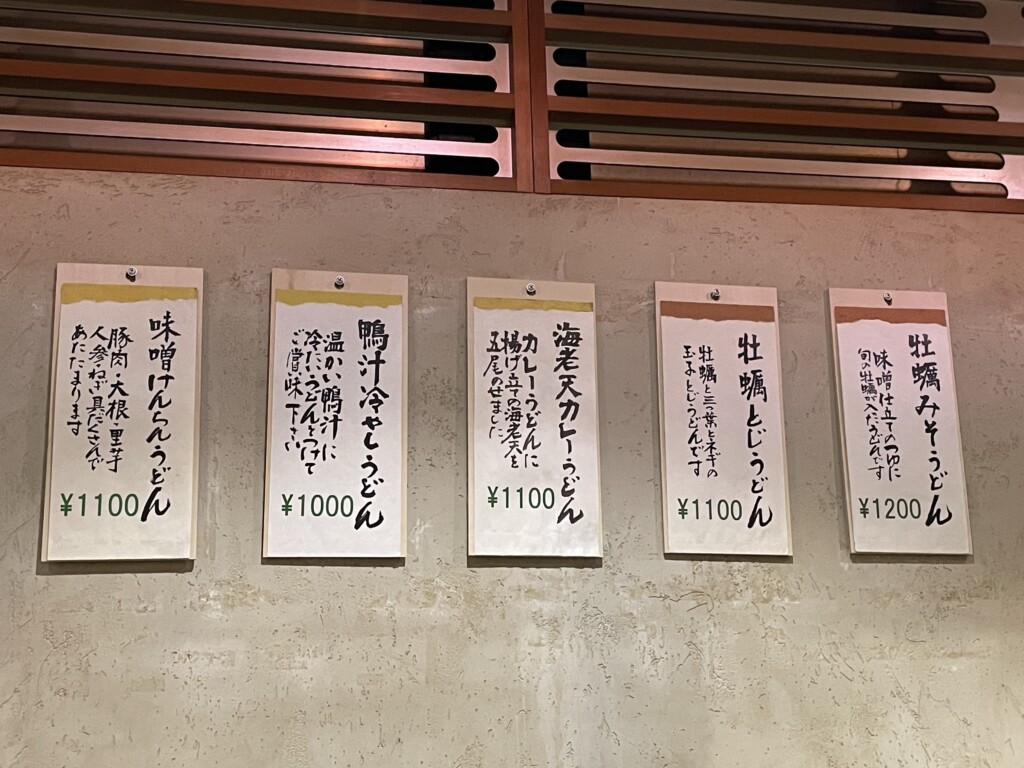 牡蠣みそうどん
味噌仕立てのつゆに
旬の牡蠣が入ったうどんです
¥1200
牡蠣とじうどん
牡蠣と三つ葉とネギの
玉子とじうどんです
¥1100
海老天カレーうどん
カレーうどんに
揚げ立ての海老天を
五尾のせました
¥1100
鴨汁冷やしうどん
温かい鴨汁に
冷たいうどんをつけて
ご賞味下さい
¥1000
味噌けんちんうどん
豚肉・大根・里芋
人参・ねぎ具だくさんで
あたたまります
¥1100